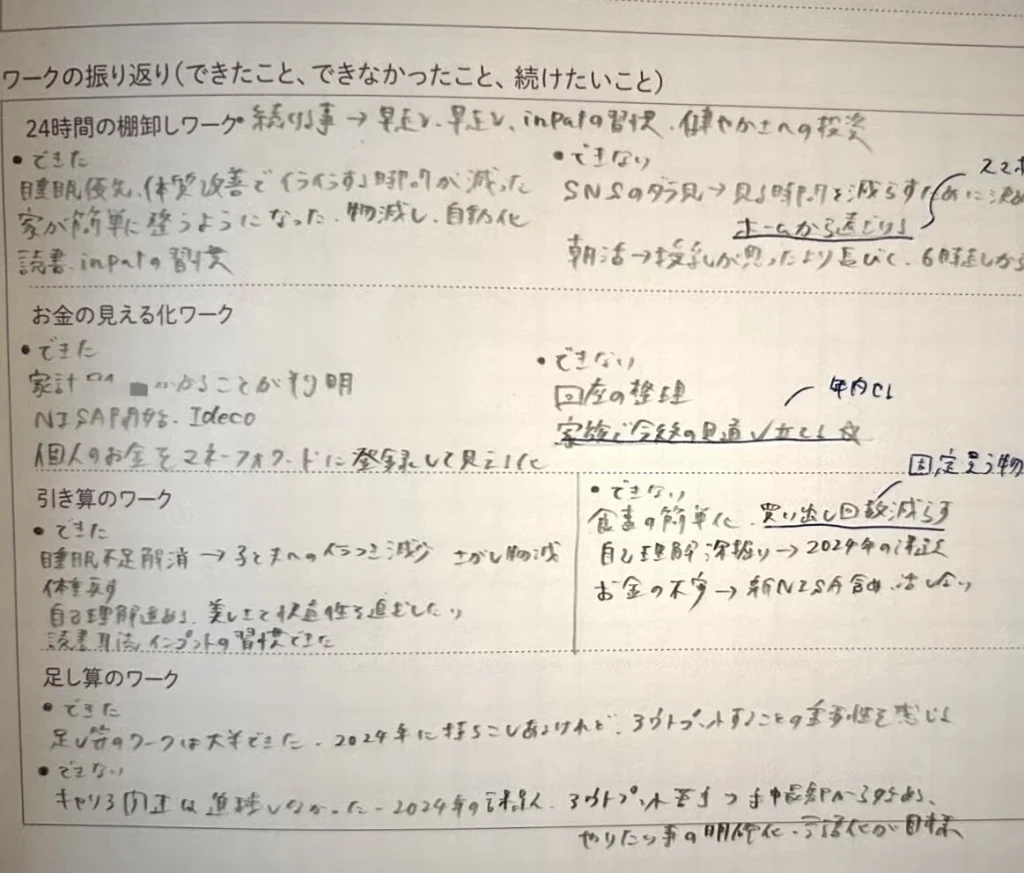 ワークの振り返り(できたこと、できなかったこと、続けたいこと)
24時間の棚卸しワーク 続ける事→早走り、早走り、inputの習慣、健やかさへの投資
•できた
睡眠優先、体質改善でイライラする時間が減った
家が簡単に整うようになった、物減し、自動化
読書、inputの習慣
•できない
スマホ
SNSのダラ見→見る時間を減らすために決め
ホームから遠ざける
朝活→授乳が思ったより長びく、6時走しから
お金の見える化ワーク
•できた
家計 かかることが判明
NISA開始、Ideco
個人のお金をマネーフォワードに登録して見える化
•できない
口座の整理
年内に
家族で今後の見通し立てる
引き算のワーク
•できた
睡眠不足解消→子と夫へのイラつき減少 さがし物減
体重戻す
自己理解進める、美しさと快適性を追求したい
読書 インプットの習慣できた
固定買う物
•できない
食事の簡単化、買い出し回数減らす
自己理解深掘り→2024年の
お金の不安→新NISA含め、話しない
足し算のワーク
•できた
足し算のワークは大半できた、2024年に持ちこしあるけれど、アウトプットすることの重要性を感じる
•できない
キャリア関連は進捗しなかった-2024年の課題、アウトプット
やりたい事の明確化、言語化が目標